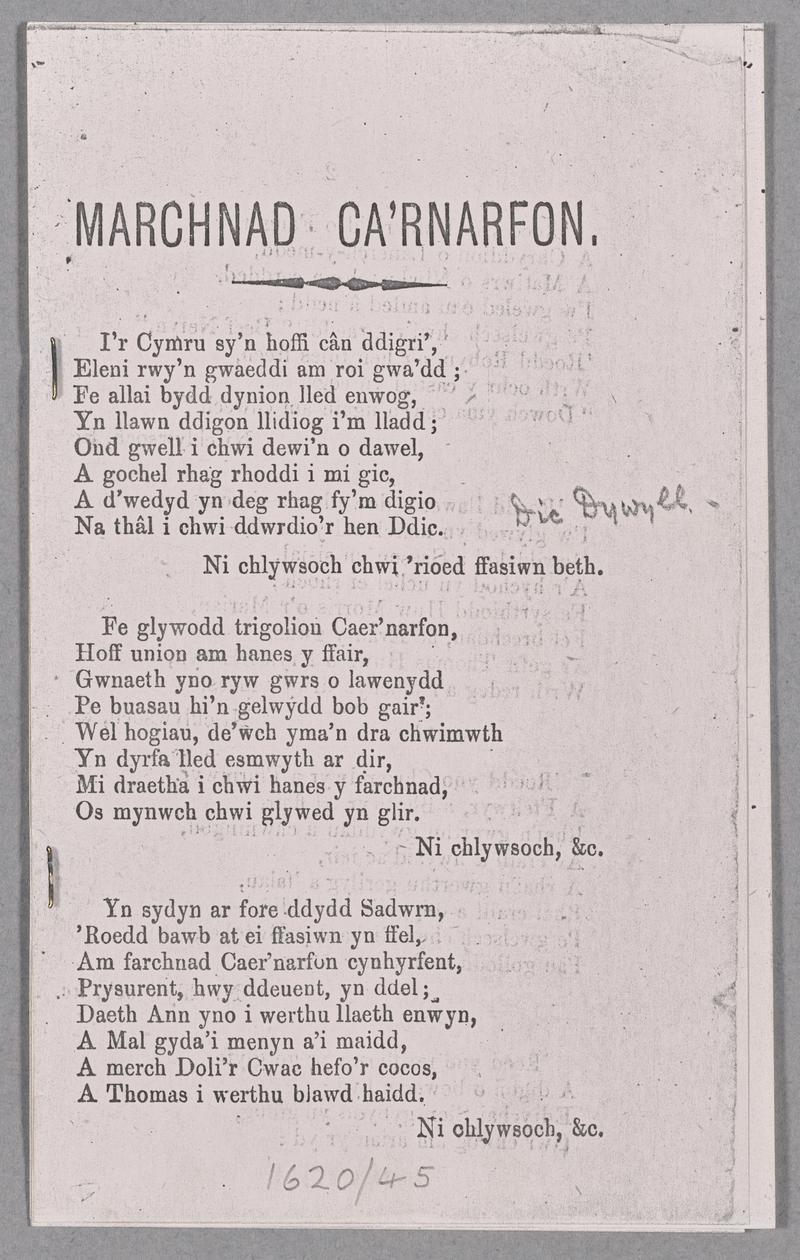 MARCHNAD CA'RNARFON.
I'r Cymru sy'n hoffi cân ddigri',
Eleni rwy'n gwaeddi am roi gwa'dd ;
Fe allai bydd dynion lled enwog,
Yn llawn ddigon llidiog i'm lladd ;
Ond gwell i chwi dewi'n o dawel,
A gochel rhag rhoddi i mi gic,
A d'wedyd yn deg rhag fy'm digio
Na thâl i chwi ddwrdio'r hen Ddic.
Dic Dywyll. -
Ni chlywsoch chwi 'rioed ffasiwn beth.
Fe glywodd trigolion Caer'narfon,
Hoff union am hanes y ffair,
Gwnaeth yno ryw gwrs o lawenydd
Pe buasau hi'n gelwydd bob gair';
Wel hogiau, de'wch yma'n dra chwimwth
Yn dyrfa lled esmwyth ar dir,
Mi draetha i chwi hanes y farchnad,
Os mynwch chwi glywed yn glir.
Ni chlywsoch, &c.
Yn sydyn ar fore ddydd Sadwrn,
'Roedd bawb at ei ffasiwn yn ffel,
Am farchnad Caer'narfon cynhyrfent,
Prysurent, hwy ddeuent, yn ddel;
Daeth Ann yno i werthu llaeth enwyn,
A Mal gyda'i menyn a'i maidd,
A merch Doli'r Cwac hefo'r cocos,
A Thomas i werthu blawd haidd.
Ni chlywsoch, &c.
1620/45